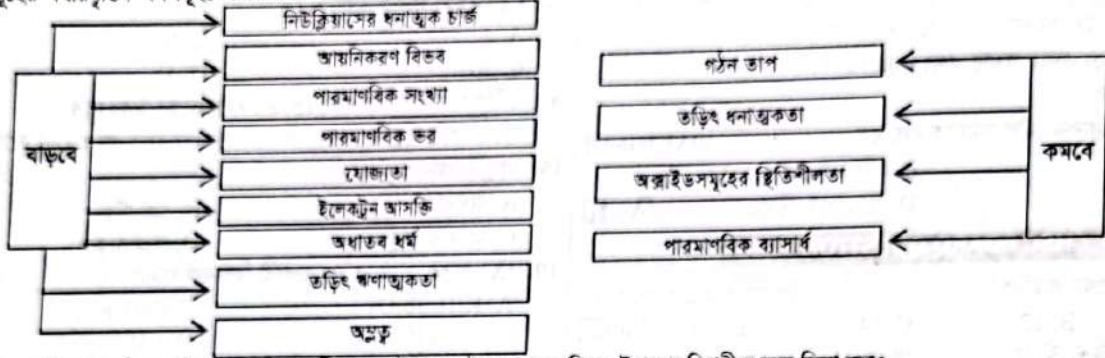 নিউক্লিয়াসের ধনাত্মক চার্জ
আয়নিকরণ বিভব
পারমাণবিক সংখ্যা
পারমাণবিক ভর
যোজ্যতা
ইলেকট্রন আসক্তি
অধাতব ধর্ম
তড়িৎ ঋণাত্মকতা
অম্লত্ব
বাড়বে
গঠন তাপ
তড়িৎ ধনাত্মকতা
অক্সাইডসমূহের স্থিতিশীলতা
পারমাণবিক ব্যাসার্ধ
কমবে